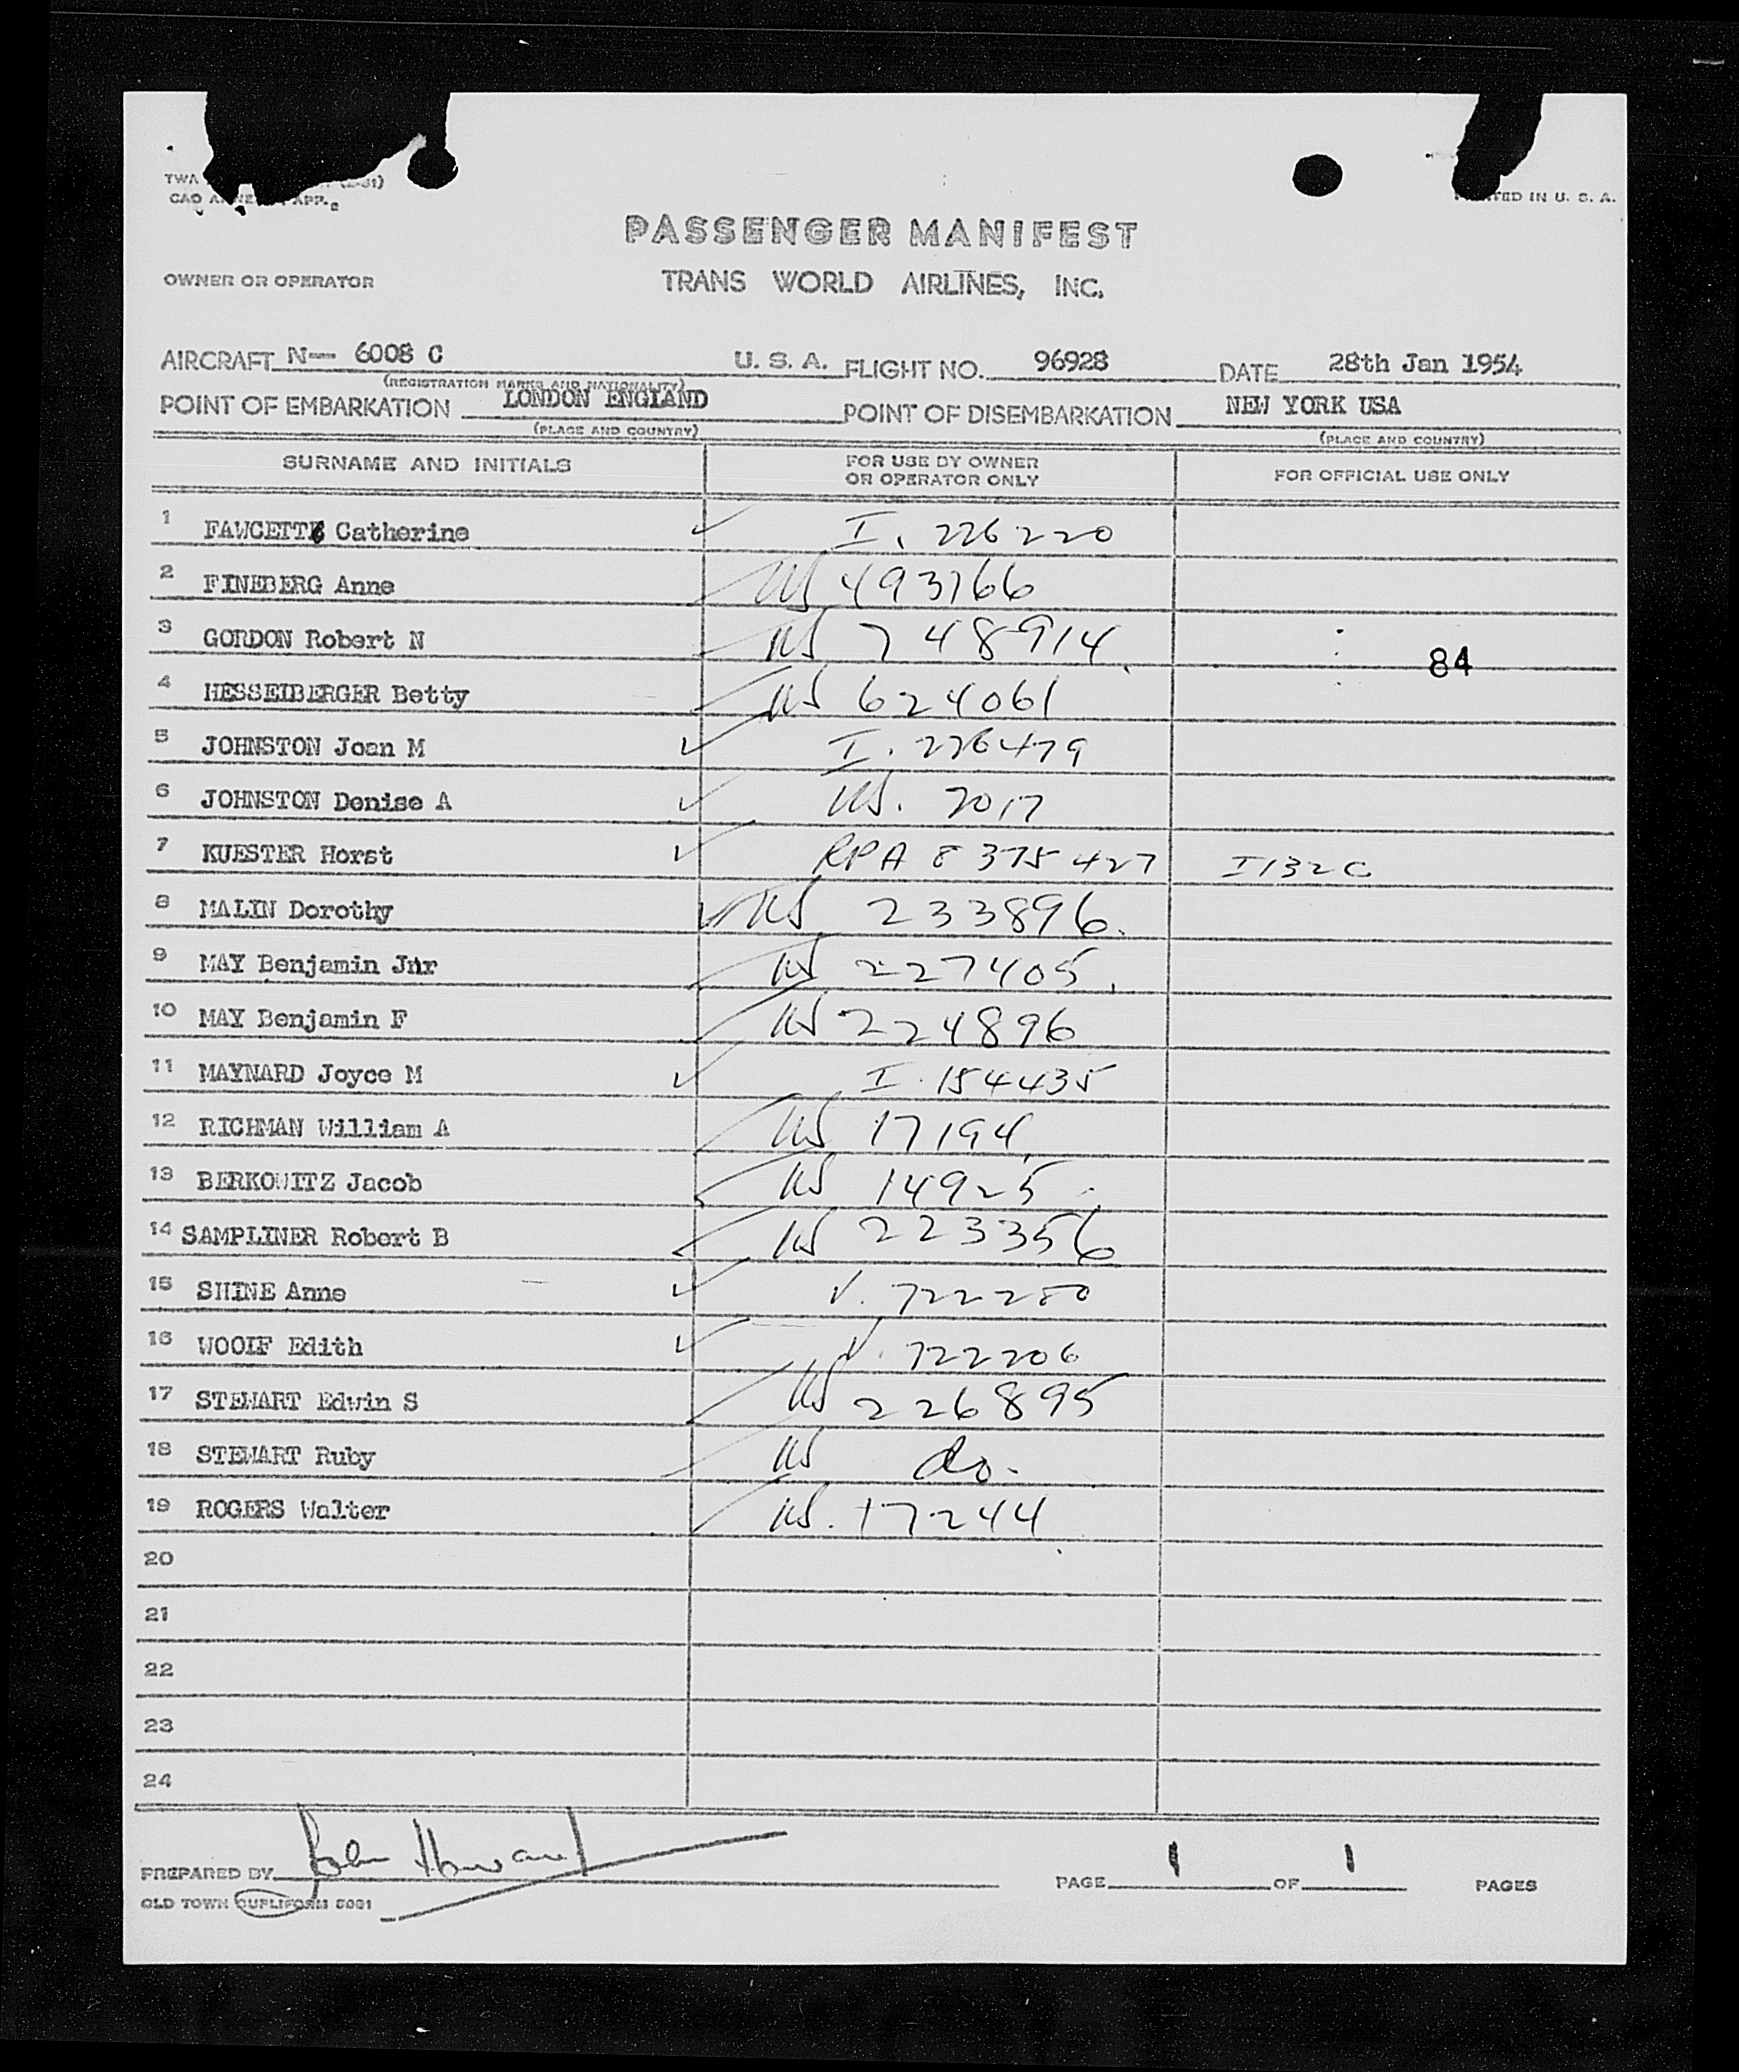 TWA
PRINTED IN U. S. A.
PASSENGER MANIFEST
OWNER OR OPERATOR
TRANS WORLD AIRLINES, INC.
AIRCRAFT N— 6008 C U. S. A. FLIGHT NO. 96928 DATE 28th Jan 1954
(REGISTRATION MARKS AND NATIONALITY)
POINT OF EMBARKATION LONDON ENGLAND POINT OF DISEMBARKATION NEW YORK USA
(PLACE AND COUNTRY) (PLACE AND COUNTRY)
SURNAME AND INITIALS FOR USE BY OWNER OR OPERATOR ONLY FOR OFFICIAL USE ONLY
1 FAWCETT Catherine ✓ I. 226220
2 FINEBERG Anne US 493766
3 GORDON Robert N US 748914
84
4 HESSELBERGER Betty US 624061
5 JOHNSTON Joan M ✓ I. 226479
6 JOHNSTON Denise A ✓ US. 7017
7 KUESTER Horst ✓ RPA 8375427 I132C
8 MALIN Dorothy ✓ US 233896.
9 MAY Benjamin Jnr US 227405.
10 MAY Benjamin F US 224896
11 MAYNARD Joyce M ✓ I. 154435
12 RICHMAN William A US 17194
13 BERKOWITZ Jacob US 14925
14 SAMPLINER Robert B US 223356
15 SHINE Anne ✓ V. 722280
16 WOOLF Edith ✓ V. 722206
17 STEWART Edwin S US 226895
18 STEWART Ruby US do.
19 ROGERS Walter US. 17244
20
21
22
23
24
PREPARED BY John Howard PAGE 1 OF 1 PAGES
OLD TOWN DUPLIFORM 5091